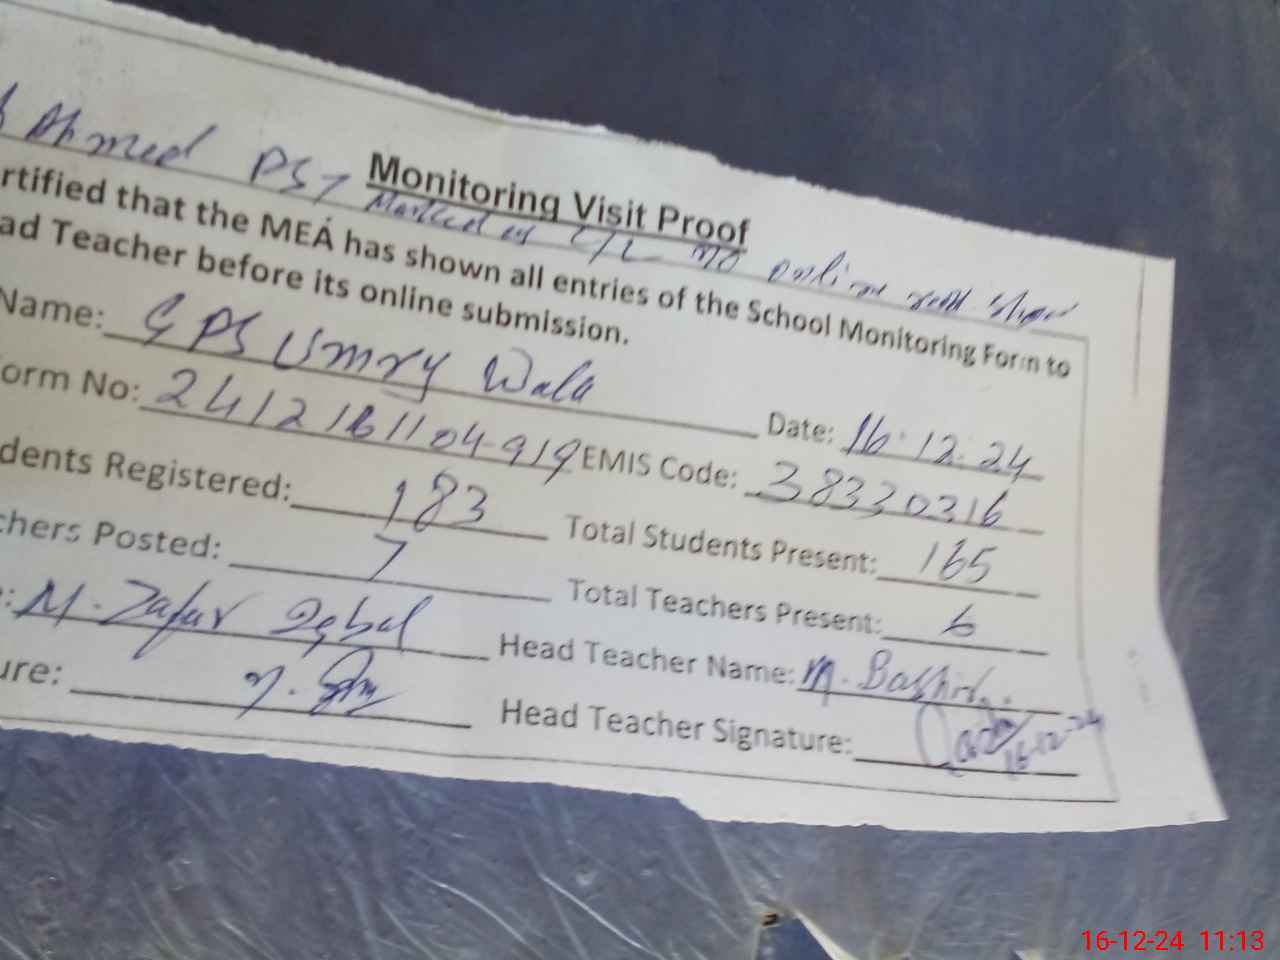 Monitoring Visit Proof
Ahmed PST Marked as C/L no online
rtified that the MEA has shown all entries of the School Monitoring Form to
ad Teacher before its online submission.
Name: GPS Umry Wala Date: 16.12.24
orm No: 2412161104919 EMIS Code: 38330316
dents Registered: 183 Total Students Present: 165
chers Posted: 7 Total Teachers Present: 6
: M. Zafar Iqbal Head Teacher Name: M. Bashir
ure: Head Teacher Signature: 16-12-24
16-12-24 11:13